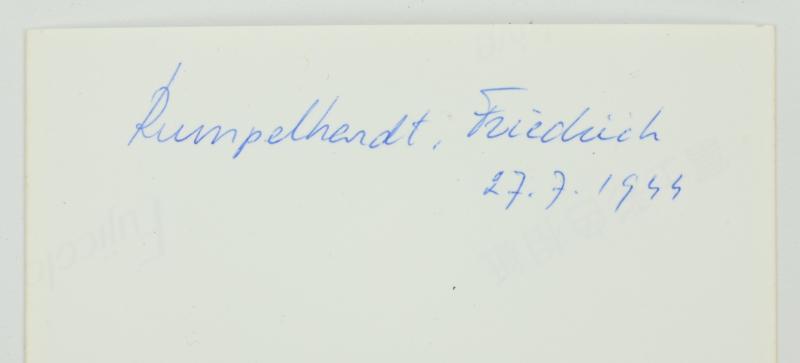 Rumpelhardt, Friedrich
27.7.1944
Fujicolo